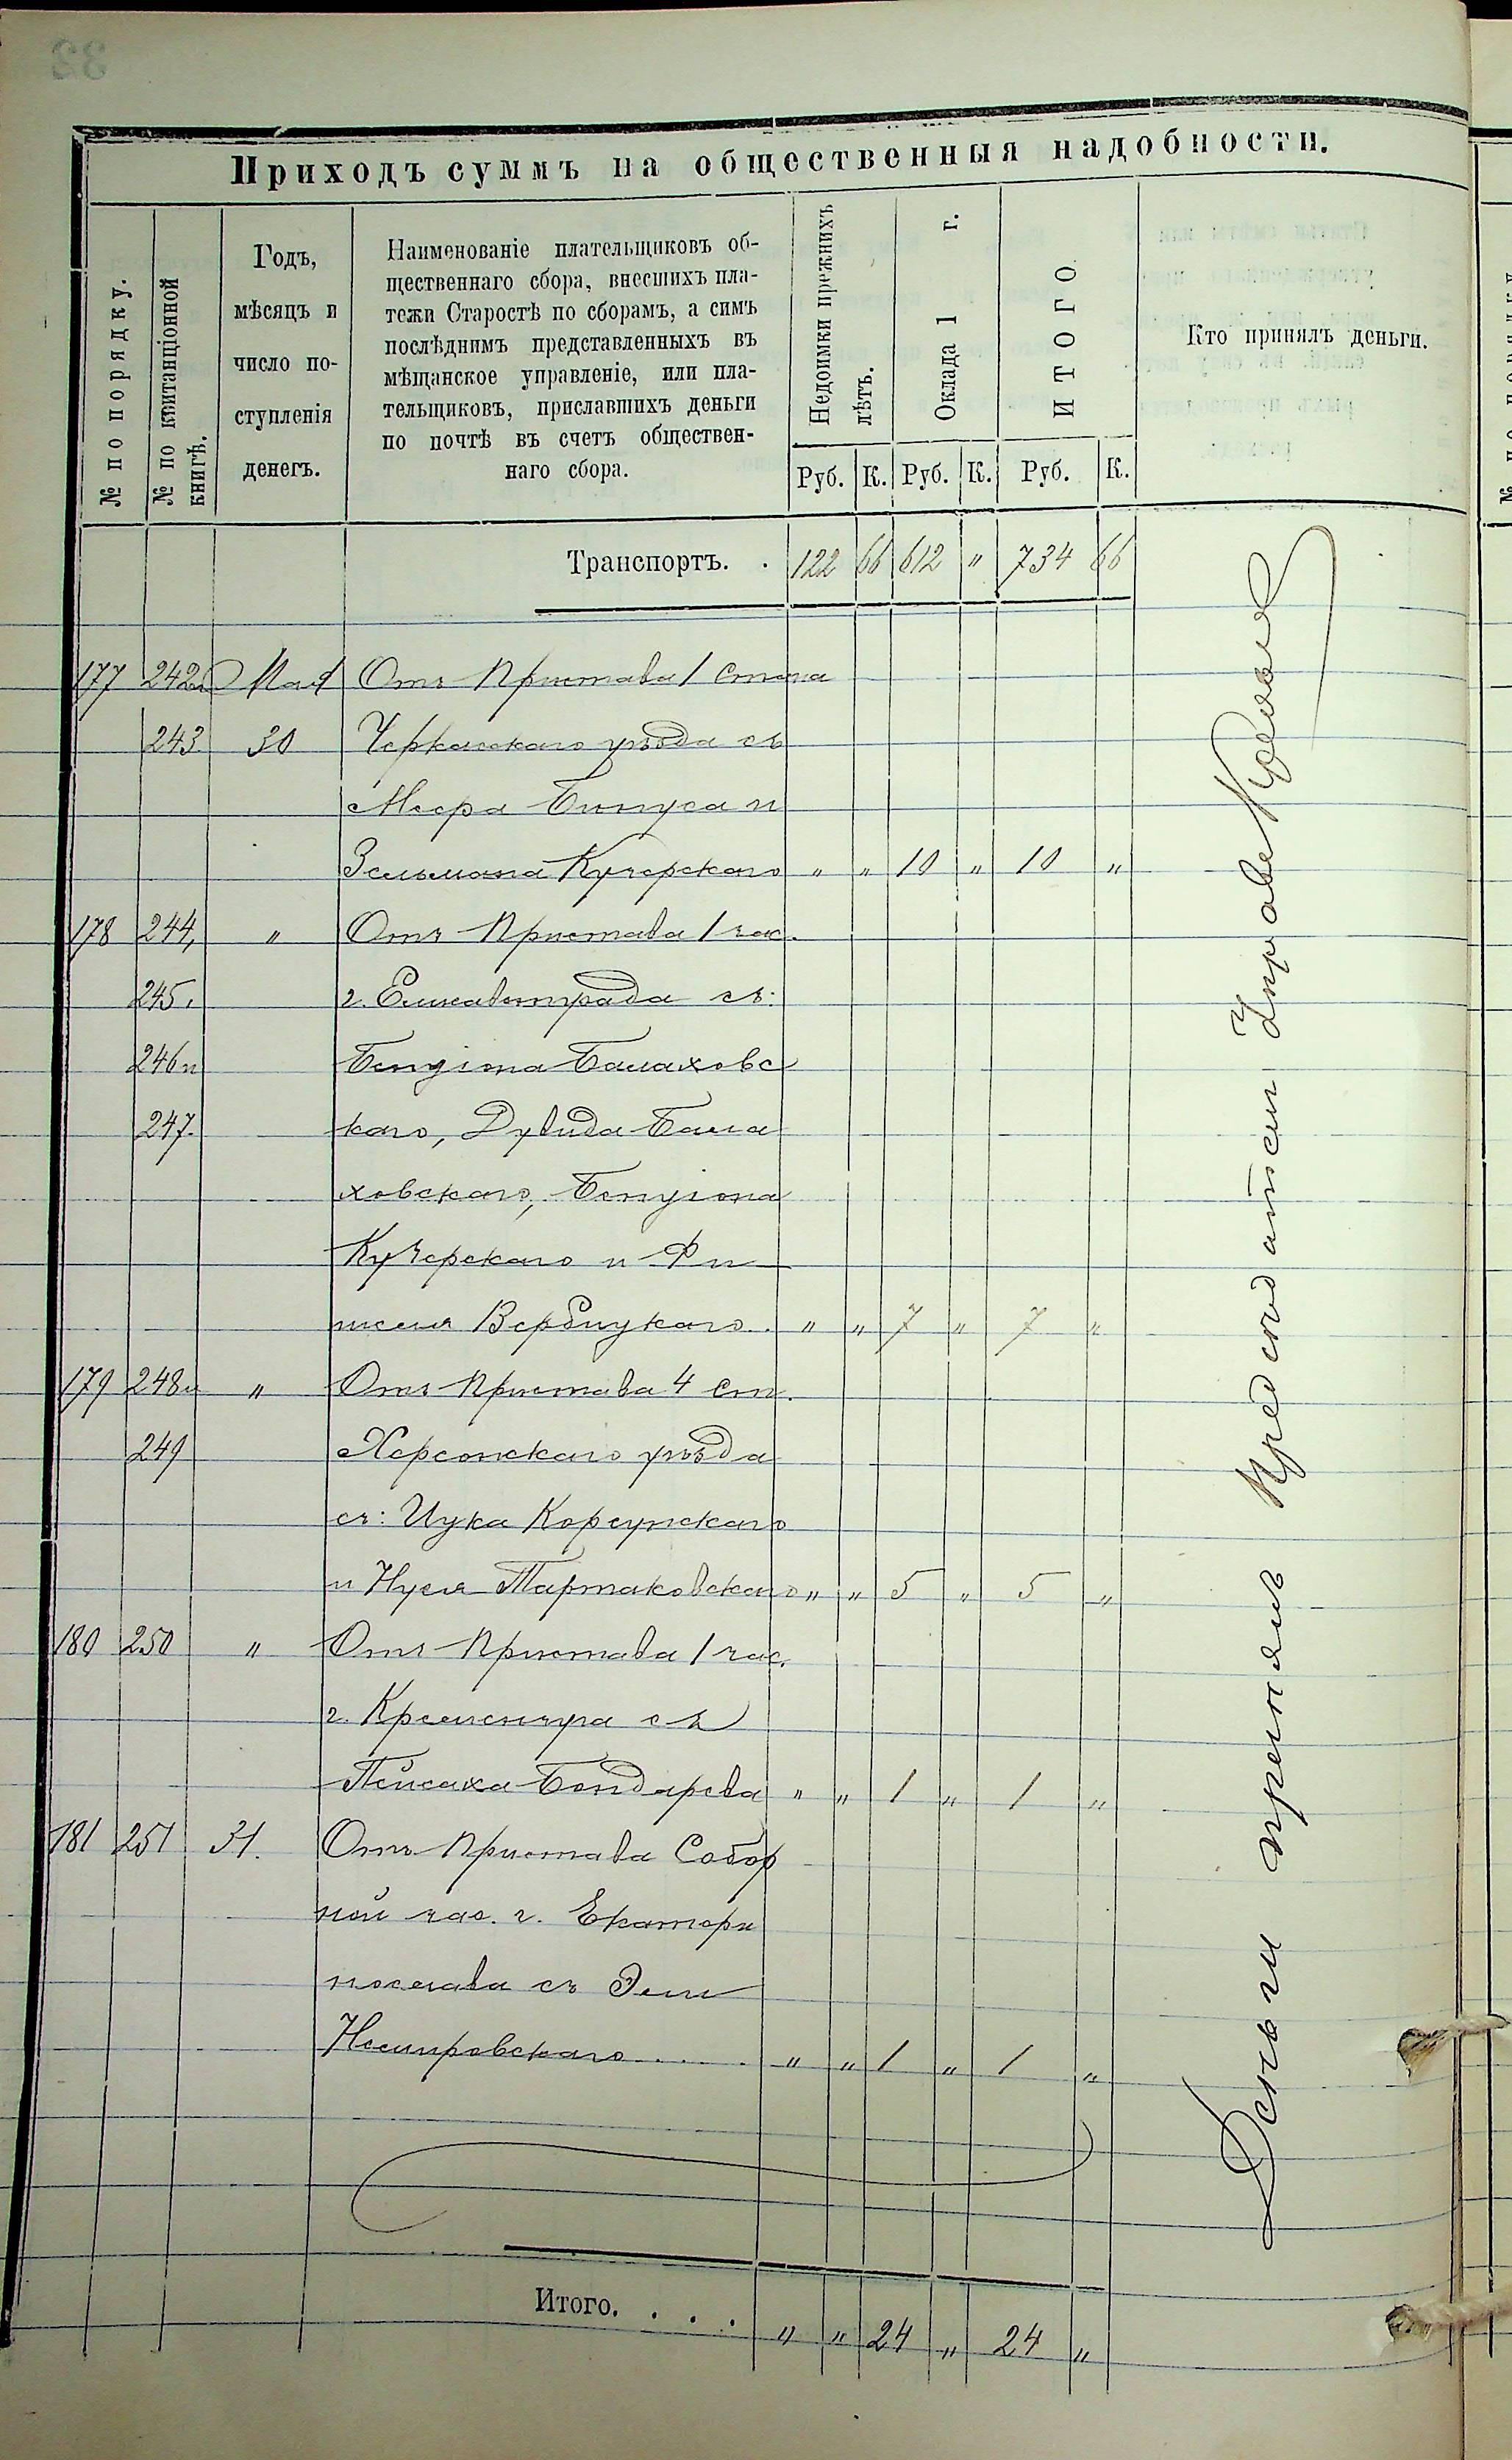 32
Приходъ суммъ на общественныя надобности.
№ по порядку.
№ по квитанціонной книгѣ.
Годъ,
мѣсяцъ и
число по-
ступленія
денегъ.
Наименованіе плательщиковъ об-
щественнаго сбора, внесшихъ пла-
тежи Старостѣ по сборамъ, а симъ
послѣднимъ представленныхъ въ
мѣщанское управленіе, или пла-
тельщиковъ, приславшихъ деньги
по почтѣ въ счетъ обществен-
наго сбора.
Недоимки прежнихъ лѣтъ.
Оклада 1 г.
ИТОГО
Кто принялъ деньги.
Руб. К. Руб. К. Руб. К.
Транспортъ. . 122 66 612 " 734 66
177 242и Мая Отъ Пристава 1 стана
243 30 Черкасскаго уѣзда съ
Меера Бинуса и
Зельмана Кучерскаго " " 10 " 10 "
178 244, " Отъ Пристава 1 час.
245. г. Елисаветграда съ:
246и Бенуіона Балаховс
247. каго, Дувида Бала
ховскаго, Бенуіона
Кучерскаго и Фи
шеля Вербицкаго. " " 7 " 7 "
179 248и " Отъ Пристава 4 ст.
249 Херсонскаго уѣзда
съ: Ицка Корсунскаго
и Нуся Тартаковскаго " " 5 " 5 "
180 250 " Отъ Пристава 1 час.
г. Кременчуга съ
Пейсаха Бондарева " " 1 " 1 "
181 251 31. Отъ Пристава Собор
ной час. г. Екатери
нослава съ Эли
Немировскаго .... " " 1 " 1 "
Итого. . . . " " 24 " 24 "
Деньги принялъ Предсѣдатель Управы